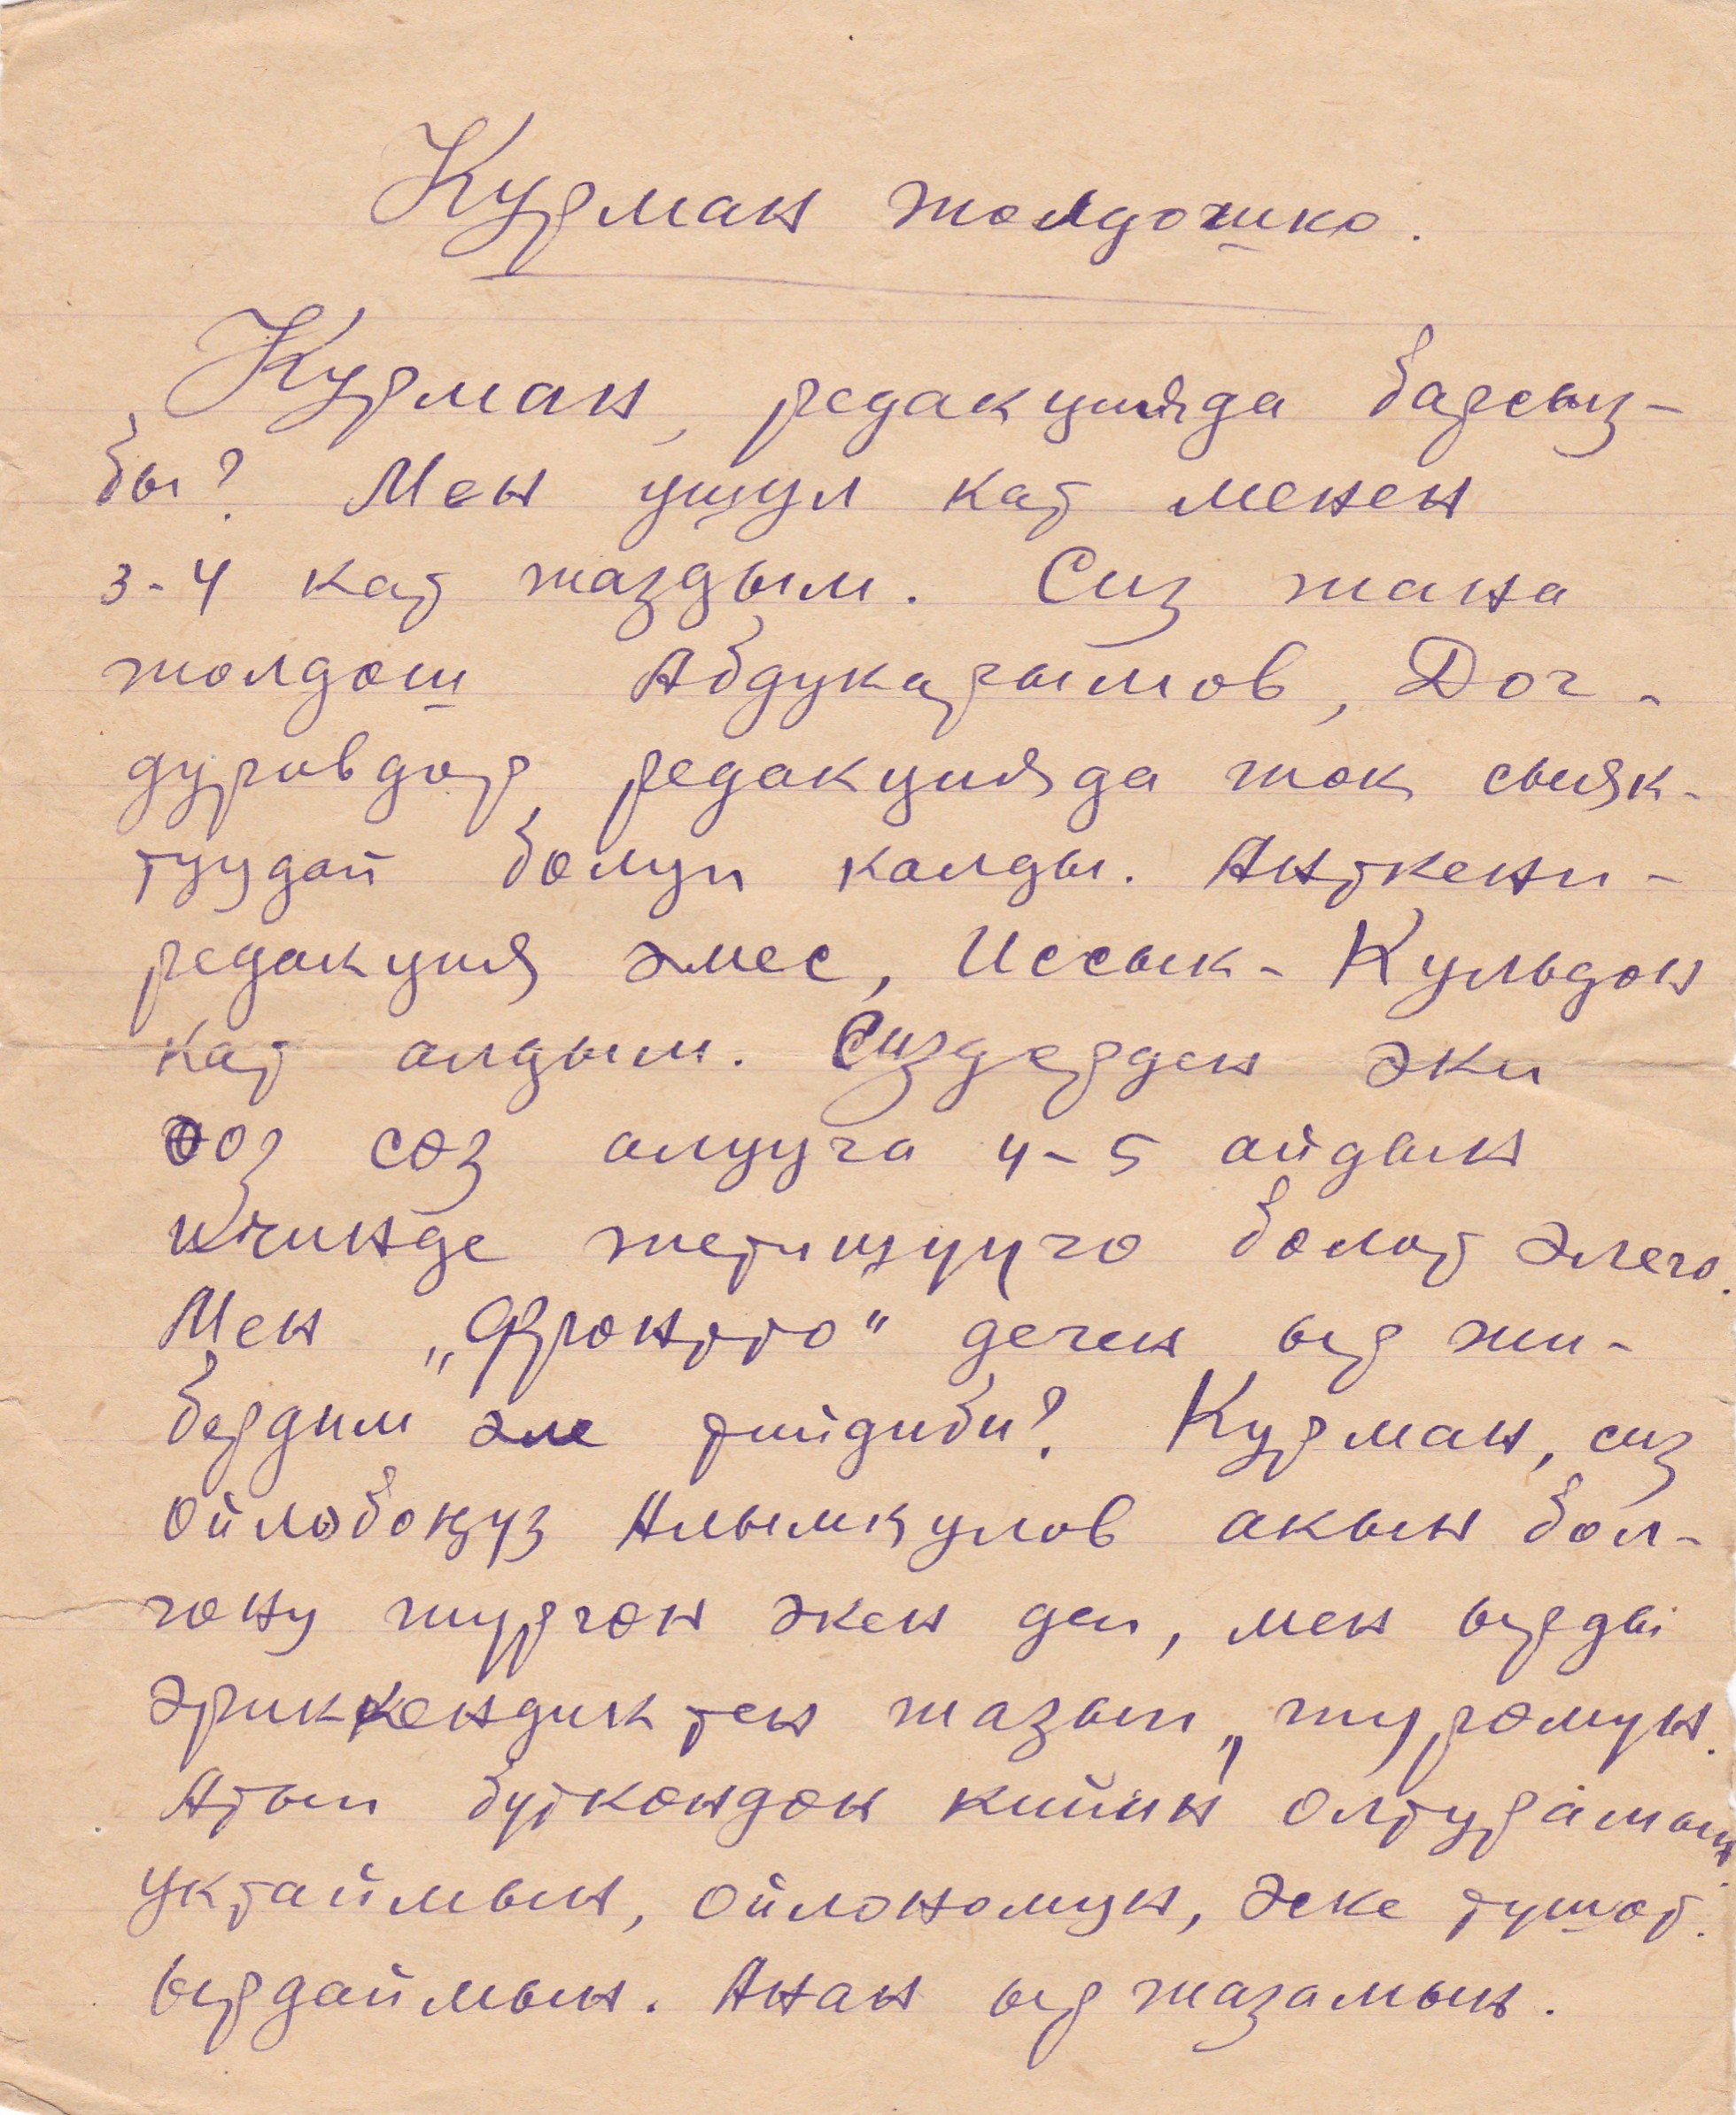 Курман жолдошко.
Курман, редакцияда барсыз-
бы? Мен ушул кат менен
3-4 кат жаздым. Сиз жана
жолдош Абдукаримов, Дог-
дуровдор редакцияда жок сыяк-
туудай болуп калды. Анткени-
редакция эмес, Иссык-Кульдон
кат алдым. Сиздерден эки
ооз соз алууга 4-5 айдын
ичинде жетишууго болот элего.
Мен „Фронтто" деген ыр жи-
бердим эле тийдиби? Курман, сиз
ойлобоңуз Алымкулов акын бол-
гону жургон экен деп, мен ырды
эриккендиктен жазып, журомун.
Атып буткондон кийин олтурамын,
уктаймын, ойлономун, эске тушот.
ырдаймын. Анан ыр жазамын.